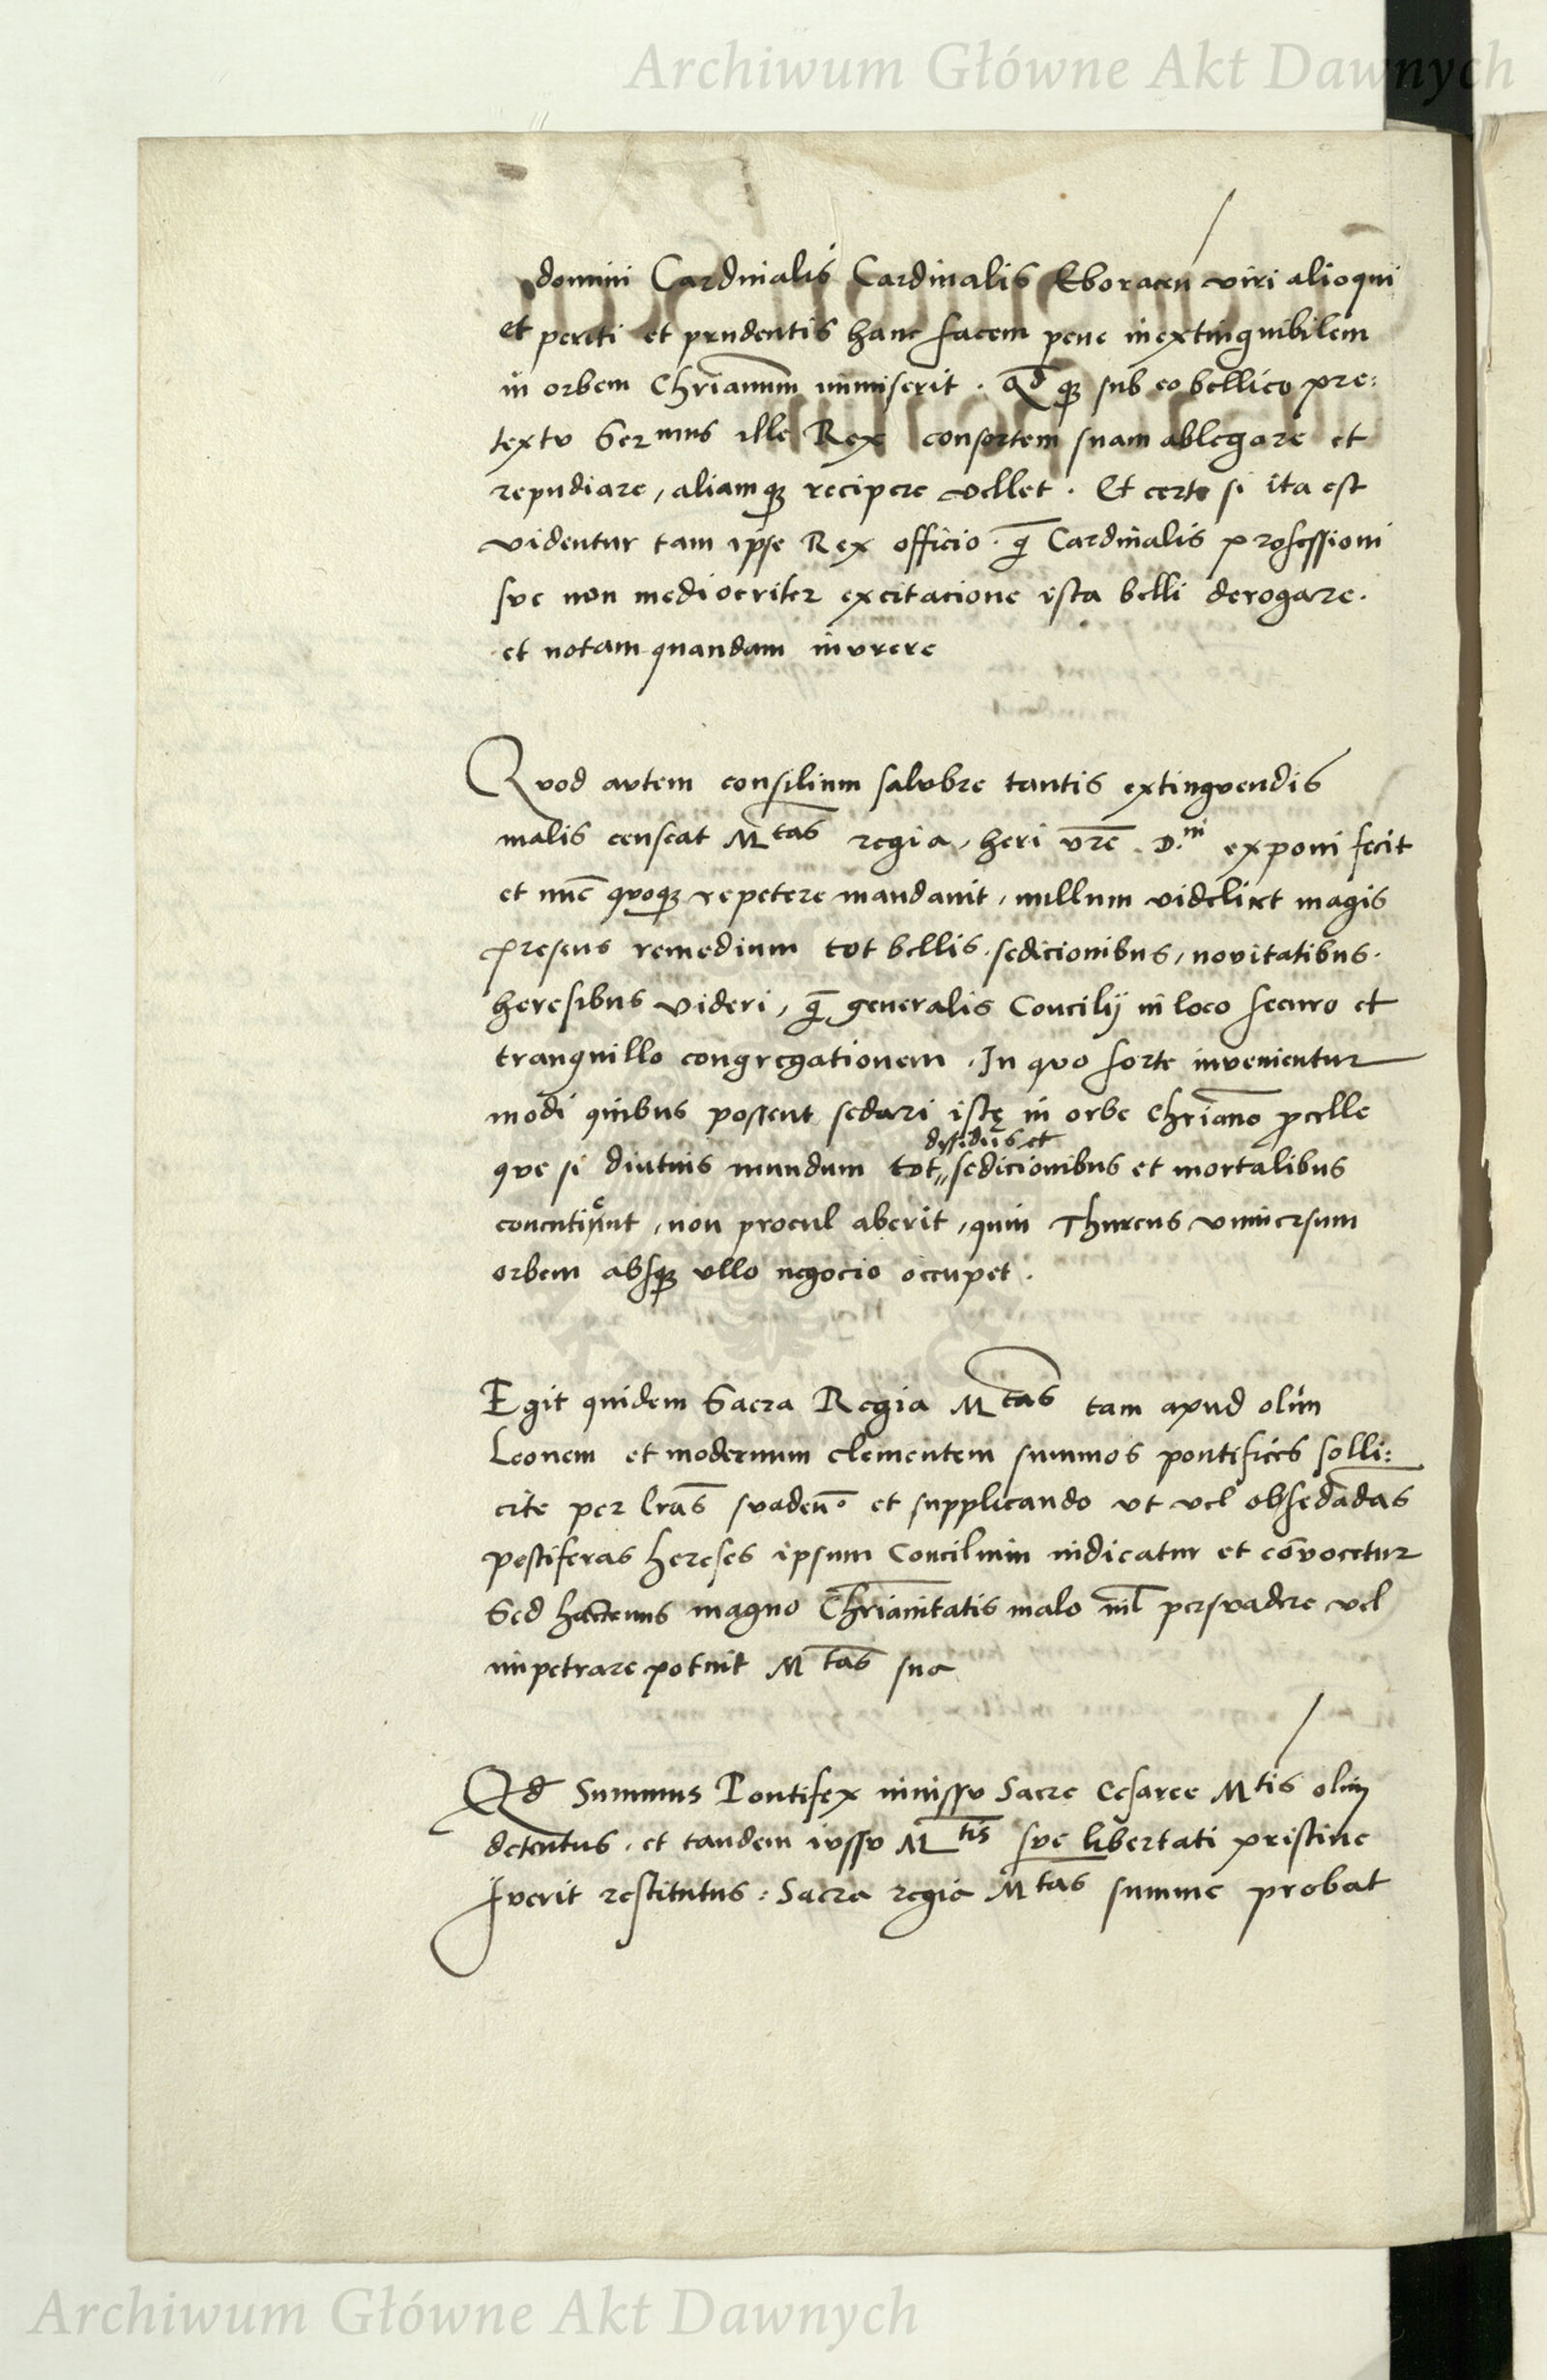 Archiwum Główne Akt Dawnych
domini Cardinalis Cardinalis Eboracen viri alioqui
et periti et prudentis hanc facem pene inextinguibilem
in orbem Chrianum immiserit. Qd qz sub eo bellico pre:
textu Sermus ille Rex consortem suam ablegare et
repudiare, aliamqz recipere vellet. Et certe si ita est
videntur tam ipse Rex officio. q̄ Cardinalis professioni
sue non mediocriter excitacione ista belli derogare.
et notam quandam inurere
Quod autem consilium salubre tantis extinguendis
malis censeat Mtas regia, heri vre D.ni exponi fecit
et nūc quoqz repetere mandauit, nullum videlicet magis
presens remedium tot bellis. sedicionibus, novitatibus.
heresibus videri, q̄ generalis Concilij in loco securo et
tranquillo congregationem. In quo forte invenientur
modi quibus possent sedari istę in orbe Chriano pcelle
dissidijs et
que si diutius mundum tot,, sedicionibus et mortalibus
concutient, non procul aberit, quin Thurcus vniuersum
orbem absqz vllo negocio occupet.
Egit quidem Sacra Regia Mtas tam apud olim
Leonem et modernum Clementem summos pontifices solli:
cite per lras suaden. et supplicando vt vel ob sedādas
pestiferas hereses ipsum Concilium indicatur et cōvocetur
Sed hactenus magno Chrianitatis malo nil persuadere vel
impetrare potuit Mtas sua
Qd Summus Pontifex iniussu Sacre Cesaree Mtis olim
detentus. et tandem iussu Mtis sue libertati pristine
fuerit restitutus: Sacra regia Mtas summe probat
Archiwum Główne Akt Dawnych